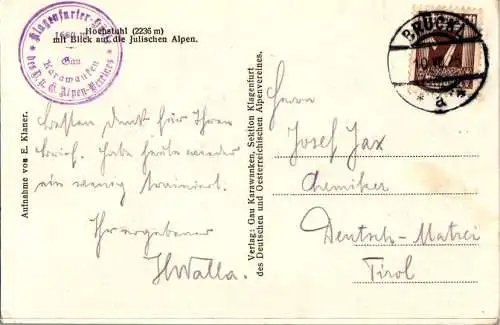 Hochstuhl (2236 m)
mit Blick auf die Julischen Alpen.
Klagenfurter-
1660 m
Gau
Karawanken
des D. u. Ö. Alpen-Vereines
BRUCK
a
Aufnahme von E. Klaner.
Besten Dank für Ihren
Brief. Habe heute wieder
ein wenig trainiert.
Ihr ergebener
HWalla.
Verlag: Gau Karawanken, Sektion Klagenfurt
des Deutschen und Oesterreichischen Alpenvereines.
Herrn
Josef Jax
Chemiker
Deutsch-Matrei
Tirol